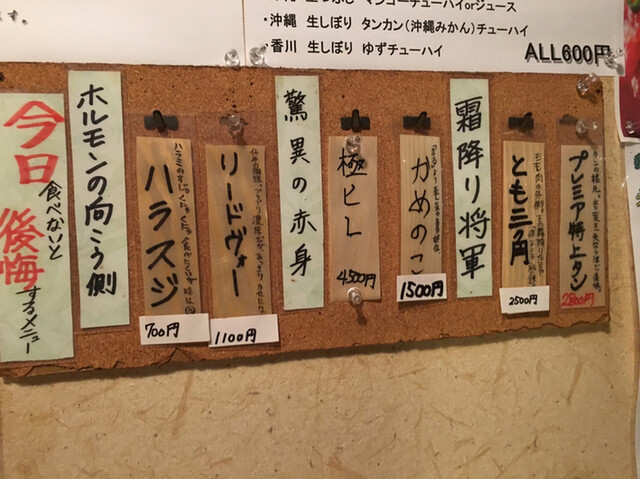 マンゴーチューハイorジュース
・沖縄 生しぼり タンカン(沖縄みかん)チューハイ
・香川 生しぼり ゆずチューハイ
ALL600円
す。
プレミア特上タン
2800円
とも三角
2500円
霜降り将軍
かめのこ
1500円
極ヒレ
4500円
驚異の赤身
リードヴォー
1100円
ハラスジ
700円
ホルモンの向こう側
今日食べないと
後悔するメニュー